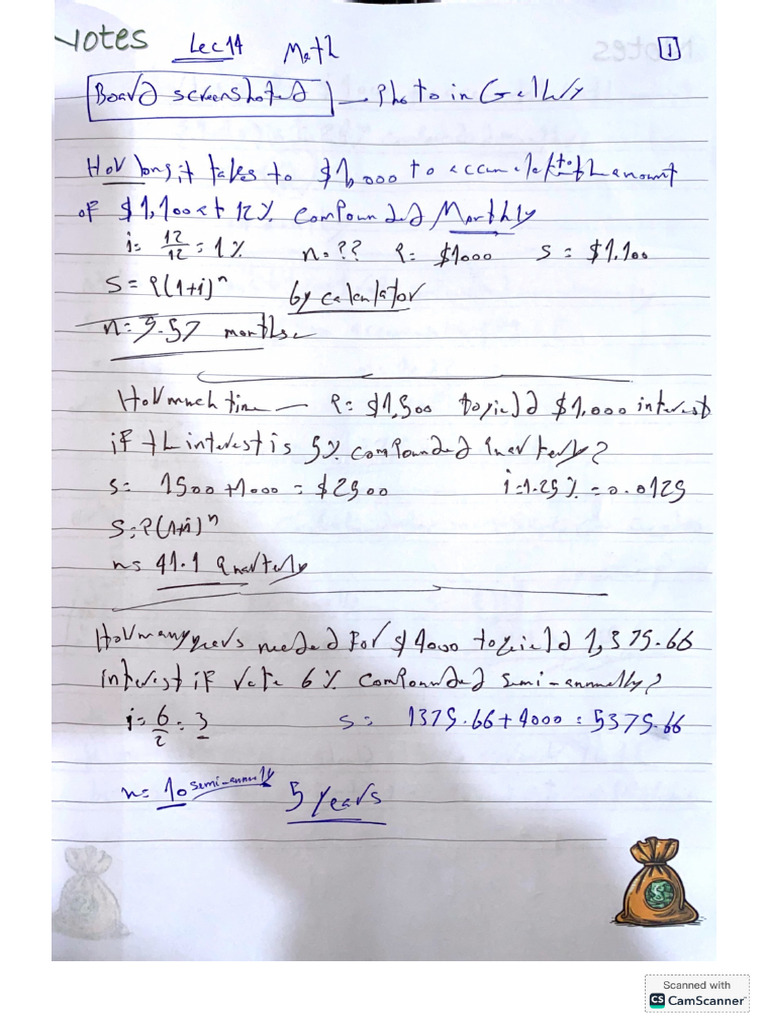 Notes Lec 14 Math 1
Board screenshoted - Photo in Gallery
How long it takes to $1,000 to accumulate to the amount
of $1,100 at 12% compounded Monthly
i = 12/12 = 1% n = ?? P = $1000 S = $1,100
S = P(1+i)^n by calculator
n = 9.57 months
How much time — P = $1,500 to yield $1,000 interest
if the interest is 5% compounded quarterly?
S = 1500 + 1000 = $2500 i = 1.25% = 0.0125
S = P(1+i)^n
n = 41.1 quarterly
How many years needed for $4000 to yield 1,375.66
interest if rate 6% compounded semi-annually?
i = 6/2 = 3 S = 1375.66 + 4000 = 5375.66
n = 10 semi-annually 5 years
Scanned with
CS CamScanner